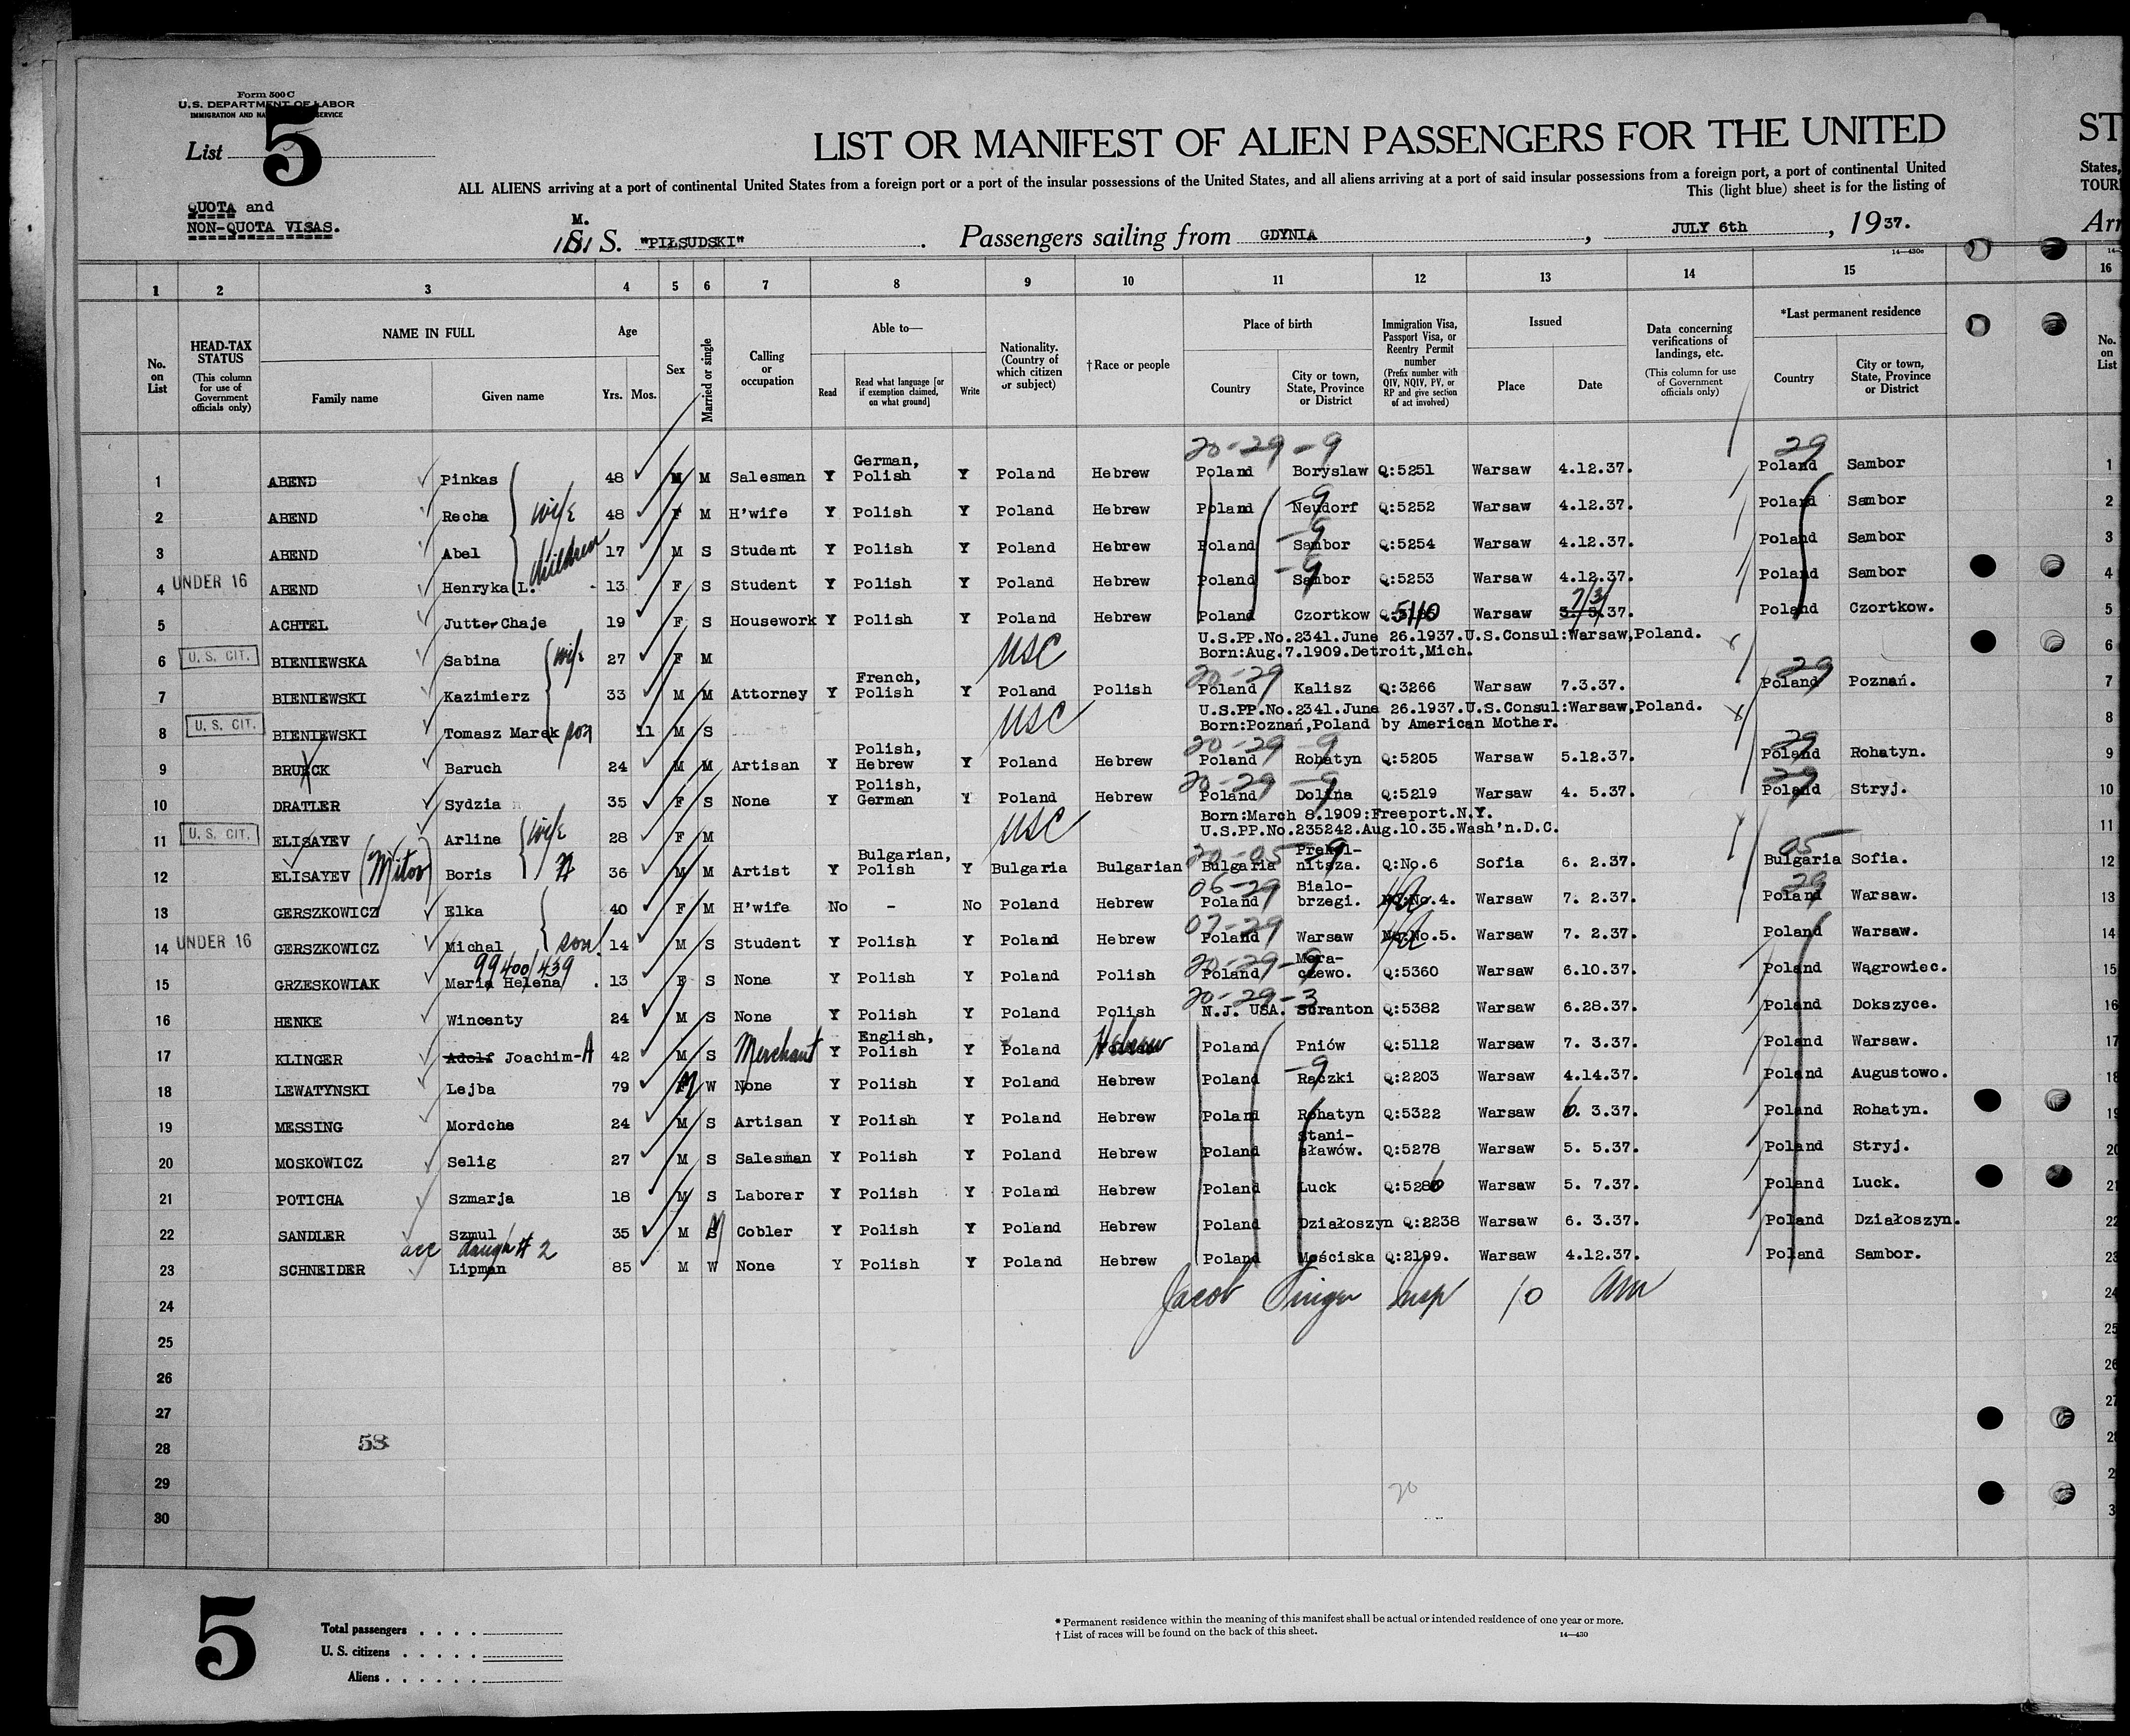 Form 500 C
U.S. DEPARTMENT OF LABOR
IMMIGRATION AND NA SERVICE
List 5
LIST OR MANIFEST OF ALIEN PASSENGERS FOR THE UNITED
ST
ALL ALIENS arriving at a port of continental United States from a foreign port or a port of the insular possessions of the United States, and all aliens arriving at a port of said insular possessions from a foreign port, a port of continental United
States,
This (light blue) sheet is for the listing of
TOUR
QUOTA and
NON-QUOTA VISAS.
M.
S. S. "PIŁSUDSKI" . Passengers sailing from GDYNIA , JULY 6th , 1937.
Arr
14—430c
1 2 3 4 5 6 7 8 9 10 11 12 13 14 15 16
No. on List
HEAD-TAX STATUS (This column for use of Government officials only)
NAME IN FULL
Family name Given name
Age
Yrs. Mos.
Sex
Married or single
Calling or occupation
Able to—
Read Read what language [or if exemption claimed, on what ground] Write
Nationality. (Country of which citizen or subject)
† Race or people
Place of birth
Country City or town, State, Province or District
Immigration Visa, Passport Visa, or Reentry Permit number (Prefix number with QIV, NQIV, PV, or RP and give section of act involved)
Issued
Place Date
Data concerning verifications of landings, etc. (This column for use of Government officials only)
*Last permanent residence
Country City or town, State, Province or District
No. on List
20-29-9 29
1 ABEND Pinkas 48 M M Salesman Y German, Polish Y Poland Hebrew Poland Boryslaw Q:5251 Warsaw 4.12.37. Poland Sambor 1
2 ABEND Recha wife 48 F M H'wife Y Polish Y Poland Hebrew Poland Neudorf -9 Q:5252 Warsaw 4.12.37. Poland Sambor 2
3 ABEND Abel children 17 M S Student Y Polish Y Poland Hebrew Poland Sambor -9 Q:5254 Warsaw 4.12.37. Poland Sambor 3
4 UNDER 16 ABEND Henryka L. 13 F S Student Y Polish Y Poland Hebrew Poland Sambor -9 Q:5253 Warsaw 4.12.37. Poland Sambor 4
5 ACHTEL Jutter Chaje 19 F S Housework Y Polish Y Poland Hebrew Poland Czortkow 5110 Warsaw 7/3/37. Poland Czortkow. 5
6 U. S. CIT. BIENIEWSKA Sabina wife 27 F M USC U.S.PP.No.2341.June 26.1937.U.S.Consul:Warsaw,Poland. 6
Born:Aug.7.1909.Detroit,Mich.
20-29 29
7 BIENIEWSKI Kazimierz 33 M M Attorney Y French, Polish Y Poland Polish Poland Kalisz Q:3266 Warsaw 7.3.37. Poland Poznań. 7
8 U. S. CIT. BIENIEWSKI Tomasz Marek son 11 M S USC U.S.PP.No.2341.June 26.1937.U.S.Consul:Warsaw,Poland. 8
Born:Poznań,Poland by American Mother.
20-29-9 29
9 BRUECK Baruch 24 M M Artisan Y Polish, Hebrew Y Poland Hebrew Poland Rohatyn Q:5205 Warsaw 5.12.37. Poland Rohatyn. 9
20-29-9 29
10 DRATLER Sydzia 35 F S None Y Polish, German Y Poland Hebrew Poland Dolina Q:5219 Warsaw 4. 5.37. Poland Stryj. 10
11 U. S. CIT. ELISAYEV Arline wife 28 F M USC Born:March 8.1909:Freeport.N.Y. 11
U.S.PP.No.235242.Aug.10.35.Wash'n.D.C.
20-05-9 05
12 ELISAYEV (Mitov) Boris 36 M M Artist Y Bulgarian, Polish Y Bulgaria Bulgarian Bulgaria Q:No.6 Sofia 6. 2.37. Bulgaria Sofia. 12
06-29 29
13 GERSZKOWICZ Elka 40 F M H'wife No - No Poland Hebrew Poland Bialo-brzegi. No.4. Warsaw 7. 2.37. Poland Warsaw. 13
07-29
14 UNDER 16 GERSZKOWICZ Michal son 14 M S Student Y Polish Y Poland Hebrew Poland Warsaw No.5. Warsaw 7. 2.37. Poland Warsaw. 14
99400/439 20-29-9
15 GRZESKOWIAK Maria Helena 13 F S None Y Polish Y Poland Polish Poland Q:5360 Warsaw 6.10.37. Poland Wągrowiec. 15
20-29-3
16 HENKE Wincenty 24 M S None Y Polish Y Poland Polish N.J. USA. Scranton Q:5382 Warsaw 6.28.37. Poland Dokszyce. 16
17 KLINGER Adolf Joachim-A 42 M S Merchant Y English, Polish Y Poland Hebrew Poland Pniów Q:5112 Warsaw 7. 3.37. Poland Warsaw. 17
18 LEWATYNSKI Lejba 79 M W None Y Polish Y Poland Hebrew Poland Raczki -9 Q:2203 Warsaw 4.14.37. Poland Augustowo. 18
19 MESSING Mordche 24 M S Artisan Y Polish Y Poland Hebrew Poland Rohatyn Q:5322 Warsaw 6. 3.37. Poland Rohatyn. 19
20 MOSKOWICZ Selig 27 M S Salesman Y Polish Y Poland Hebrew Poland Stani-sławów. Q:5278 Warsaw 5. 5.37. Poland Stryj. 20
21 POTICHA Szmarja 18 M S Laborer Y Polish Y Poland Hebrew Poland Luck Q:5286 Warsaw 5. 7.37. Poland Luck. 21
22 SANDLER Szmul 35 M M Cobler Y Polish Y Poland Hebrew Poland Działoszyn Q:2238 Warsaw 6. 3.37. Poland Działoszyn. 22
acc daugh # 2
23 SCHNEIDER Lipman 85 M W None Y Polish Y Poland Hebrew Poland Mościska Q:2199. Warsaw 4.12.37. Poland Sambor. 23
Jacob Singer Insp 10 am
24 24
25 25
26 26
27 27
28 58 28
29 20 2
30 3
5
Total passengers
U. S. citizens
Aliens
* Permanent residence within the meaning of this manifest shall be actual or intended residence of one year or more.
† List of races will be found on the back of this sheet.
14—430